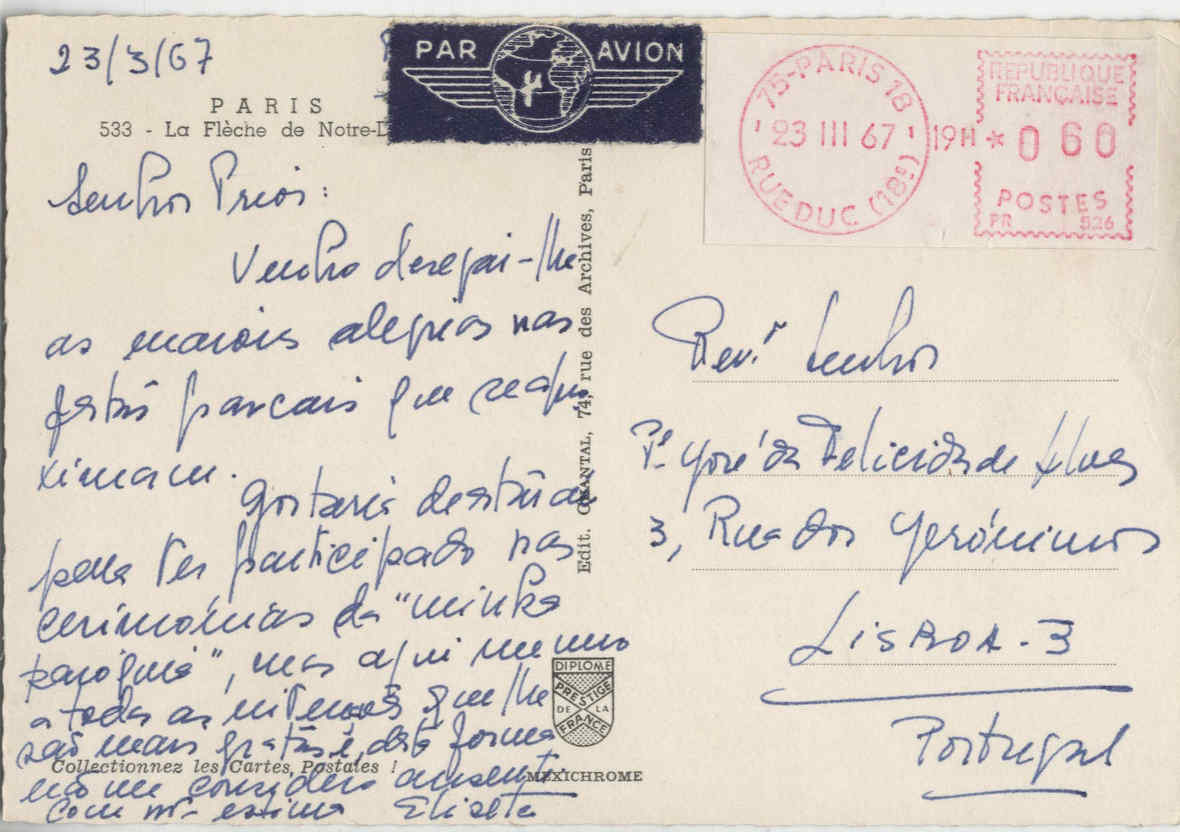 23/3/67
PARIS
533 - La Flèche de Notre-D
PAR AVION
75-PARIS 18
23 III 67
RUE DUC (18e)
19H * 0 60
REPUBLIQUE
FRANÇAISE
POSTES
PR 526
Senhor Prior:
Venho desejar-lhe
as maiores alegrias nas
festas pascais que se apro
ximam.
Gostaria de estar aí
para ter participado nas
cerimónias da "minha
paróquia", mas aqui mesmo
a todas as intenções que lhe
são mais gratas e, desta forma
não me considero ausente.
Com mta estima Elisete
Edit. CHANTAL, 74, rue des Archives, Paris
Revº Senhor
Pe José da Felicidade Alves
3, Rua dos Jerónimos
LISBOA-3
Portugal
DIPLOME
PRESTIGE
DE LA
FRANCE
Collectionnez les Cartes Postales !
MEXICHROME